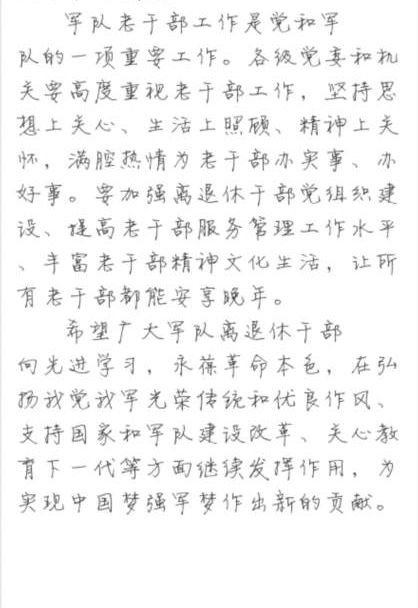 军队老干部工作是党和军
队的一项重要工作。各级党委和机
关要高度重视老干部工作，坚持思
想上关心、生活上照顾、精神上关
怀，满腔热情为老干部办实事、办
好事。要加强离退休干部党组织建
设、提高老干部服务管理工作水平
、丰富老干部精神文化生活，让所
有老干部都能安享晚年。
希望广大军队离退休干部
向先进学习，永葆革命本色，在弘
扬我党我军光荣传统和优良作风、
支持国家和军队建设改革、关心教
育下一代等方面继续发挥作用，为
实现中国梦强军梦作出新的贡献。